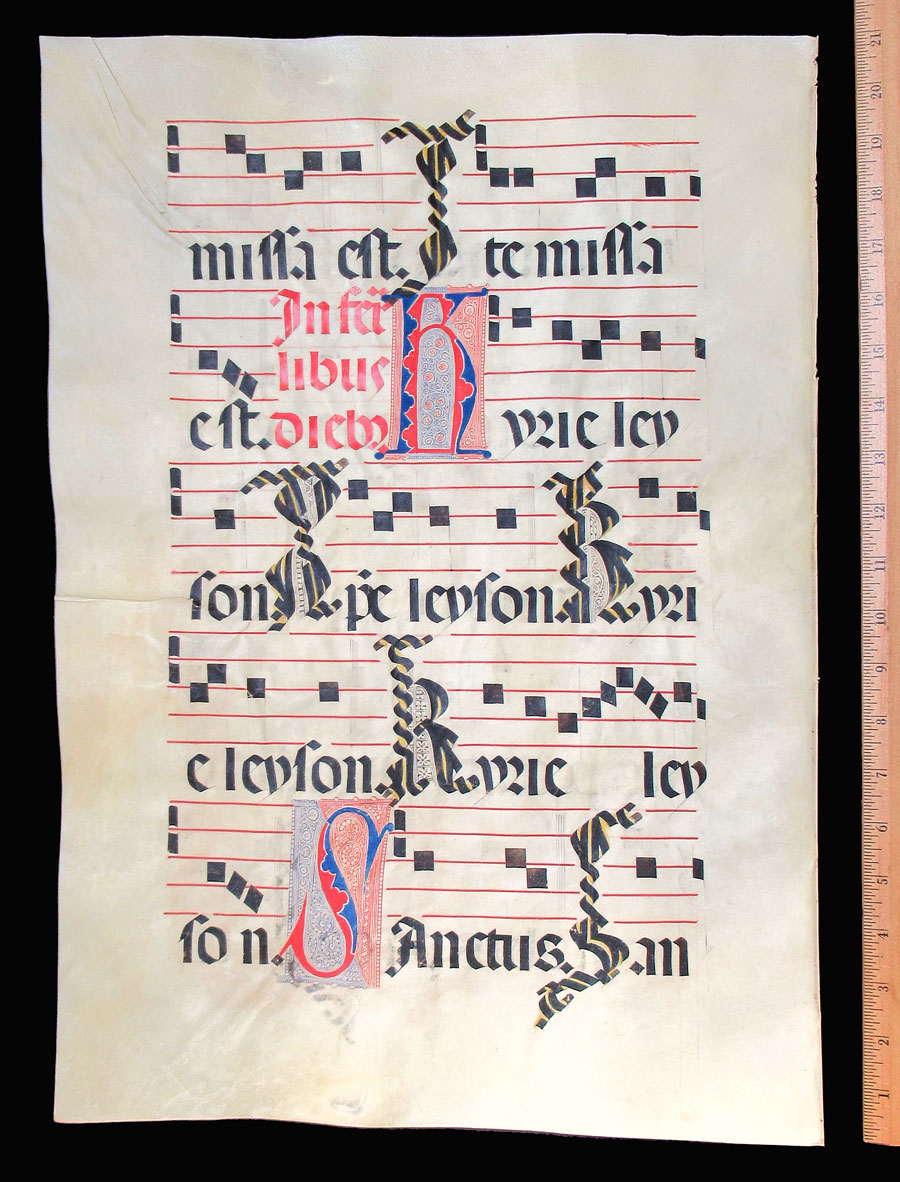 missa est. Ite missa
In fēr
libus
est. dieb⁹ Kyrie ley
son Xp̄e leyson Kyri
e leyson. Kyrie ley
son. SAnctus. San
21
20
19
18
17
16
15
14
13
12
11
10
9
8
7
6
5
4
3
2
1